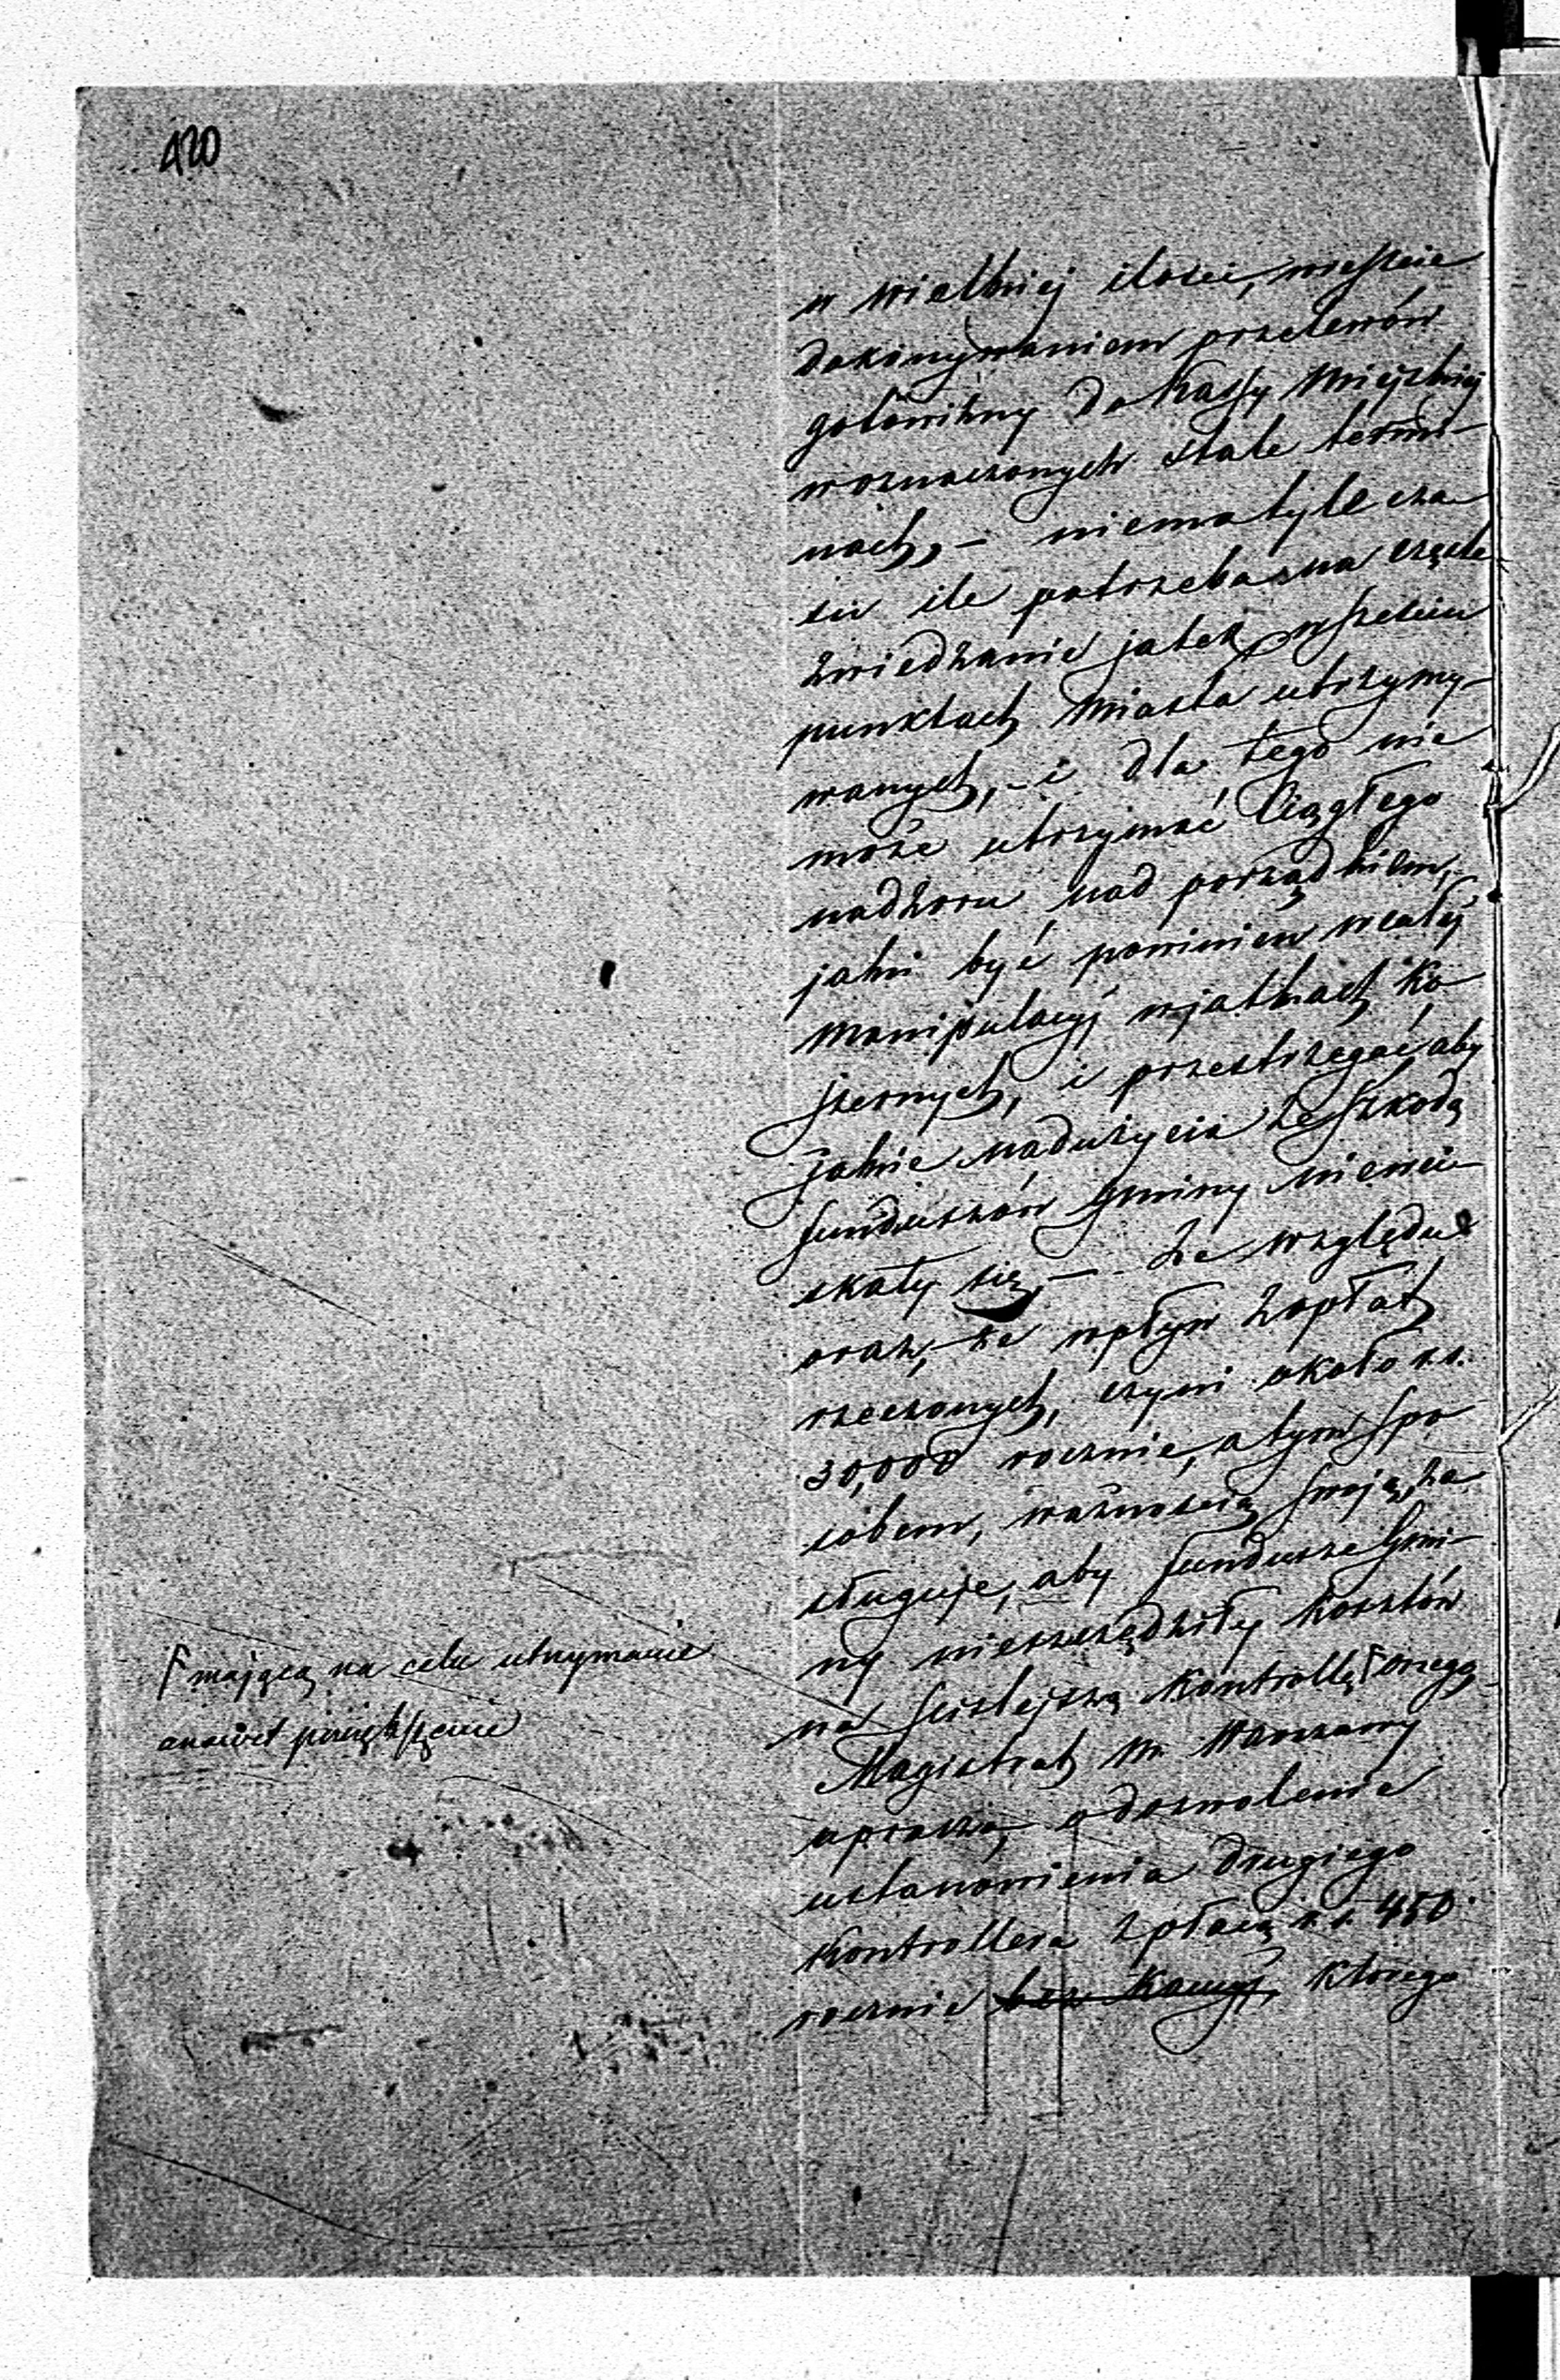 420
w wielkiej ilości, wreszcie
dokonywaniem przelewów
gotowizny do Kassy Miejskiej
w oznaczonych stale termi-
nach, – niema tyle cza-
su ile potrzeba na częste
zwiedzanie jatek w sześciu
punktach Miasta utrzymy-
wanych, – i dla tego nie
może utrzymać ciągłego
nadzoru nad porządkiem,
jaki być powinien w całej
manipulacyi w jatkach Ko-
szernych, i przestrzegać aby
jakie nadużycia ze szkodą
funduszów Gminy niewci-
skały się, – Ze względu
oraz, że wpływ z opłat
rzeczonych, czyni około r.s.
30,000 rocznie, a tym spo-
sobem, ważnością swoją, za-
sługuje, aby fundusze Gmi-
ny nieszczędziły kosztów
na ściślejszą Kontrollę Γ przeto
Magistrat m. Warszawy
uprasza, o dozwolenie
ustanowienia drugiego
Kontrollera z płacą r.s. 450
rocznie bez Kaucyi, którego
Γ mającą na celu utrzymanie
a nawet powiększenie